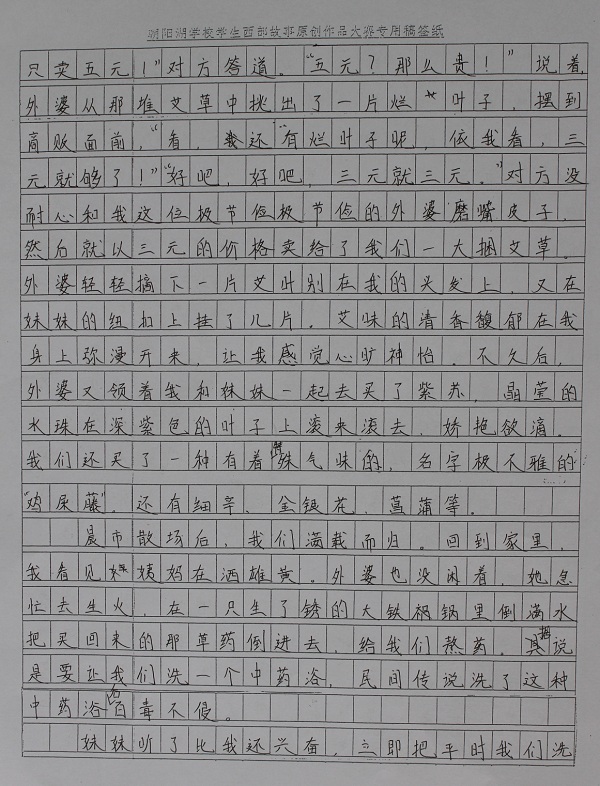 朝阳湖学校学生西部故事原创作品大赛专用稿签纸
只卖五元！”对方答道。“五元？那么贵！”说着，
外婆从那堆艾草中挑出了一片烂叶子，摆到
商贩面前，“看，我还有烂叶子呢，依我看，三
元就够了！”“好吧，好吧，三元就三元。”对方没
耐心和我这位极节俭极节俭的外婆磨嘴皮子，
然后就以三元的价格卖给了我们一大捆艾草。
外婆轻轻摘下一片艾叶别在我的头发上，又在
妹妹的纽扣上挂了几片。艾味的清香馥郁在我
身上弥漫开来，让我感觉心旷神怡。不久后，
外婆又领着我和妹妹一起去买了紫苏，晶莹的
水珠在深紫色的叶子上滚来滚去，娇艳欲滴。
我们还买了一种有着特殊气味的，名字极不雅的
“鸡屎藤”。还有细辛、金银花、菖蒲等。
晨市散场后，我们满载而归。回到家里，
我看见姨妈在洒雄黄。外婆也没闲着，她急
忙去生火，在一只生了锈的大铁锅里倒满水
把买回来的那草药倒进去，给我们熬药。据说
是要让我们洗一个中药浴，民间传说洗了这种
中药浴百毒不侵。
妹妹听了比我还兴奋，立即把平时我们洗